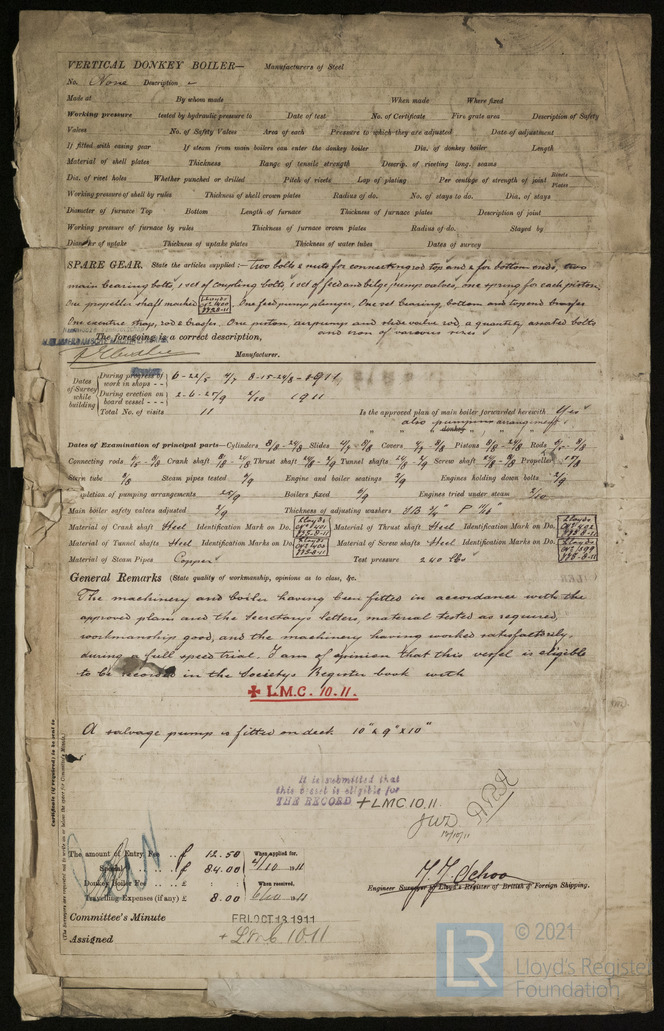 VERTICAL DONKEY BOILER— Manufacturers of Steel
No. None Description
Made at By whom made When made Where fixed
Working pressure tested by hydraulic pressure to Date of test No. of Certificate Fire grate area Description of Safety
Valves No. of Safety Valves Area of each Pressure to which they are adjusted Date of adjustment
If fitted with easing gear If steam from main boilers can enter the donkey boiler Dia. of donkey boiler Length
Material of shell plates Thickness Range of tensile strength Descrip. of riveting long. seams
Dia. of rivet holes Whether punched or drilled Pitch of rivets Lap of plating Per centage of strength of joint Rivets Plates
Working pressure of shell by rules Thickness of shell crown plates Radius of do. No. of stays to do. Dia. of stays
Diameter of furnace Top Bottom Length of furnace Thickness of furnace plates Description of joint
Working pressure of furnace by rules Thickness of furnace crown plates Radius of do. Stayed by
Diameter of uptake Thickness of uptake plates Thickness of water tubes Dates of survey
SPARE GEAR. State the articles supplied:— Two bolts & nuts for connecting rod top and 2 for bottom ends, two
main bearing bolts, 1 set of coupling bolts, 1 set of feed and bilge pump valves, one spring for each piston.
One propeller shaft marked One feed pump plunger, One set bearing, bottom and top end brasses
One excentric strap, rod & brasses. One piston, air pump and slide valve rod, a quantity assorted bolts
and iron of various sizes
The foregoing is a correct description,
Manufacturer.
Dates of Survey while building
During progress of work in shops - - 1911
During erection on board vessel - - - 1911
Total No. of visits 11
Is the approved plan of main boiler forwarded herewith Yes
also pumping arrangement
" " " donkey " " "
Dates of Examination of principal parts—Cylinders Slides Covers Pistons Rods
Connecting rods Crank shaft Thrust shaft Tunnel shafts Screw shaft Propeller
Stern tube Steam pipes tested Engine and boiler seatings Engines holding down bolts
pletion of pumping arrangements Boilers fixed Engines tried under steam
Main boiler safety valves adjusted Thickness of adjusting washers
Material of Crank shaft Steel Identification Mark on Do. Material of Thrust shaft Steel Identification Mark on Do.
Material of Tunnel shafts Steel Identification Marks on Do. Material of Screw shafts Steel Identification Marks on Do.
Material of Steam Pipes Copper Test pressure 240 lbs
General Remarks (State quality of workmanship, opinions as to class, &c.
The machinery and boiler having been fitted in accordance with the
approved plans and the Secretary's letters, material tested as required,
workmanship good, and the machinery having worked satisfactorily,
during a full speed trial. I am of opinion that this vessel is eligible
to be recorded in the Society's Register book with
✠ L.M.C. 10-11.
A salvage pump is fitted on deck 10" & 9" x 10"
It is submitted that
this vessel is eligible for
THE RECORD + LMC 10.11.
JWD
12/10/11
Certificate (if required) to be sent to
The amount of Entry Fee . . £ 12.50 When applied for.
Special £ 84.00 4/10 1911
Donkey Boiler Fee £ : : When received,
Travelling Expenses (if any) £ 8.00 1911
Engineer Surveyor to Lloyd's Register of British & Foreign Shipping.
Committee's Minute FRI. OCT 13 1911
Assigned + LMC 10 11
LR © 2021
Lloyd's Register
Foundation